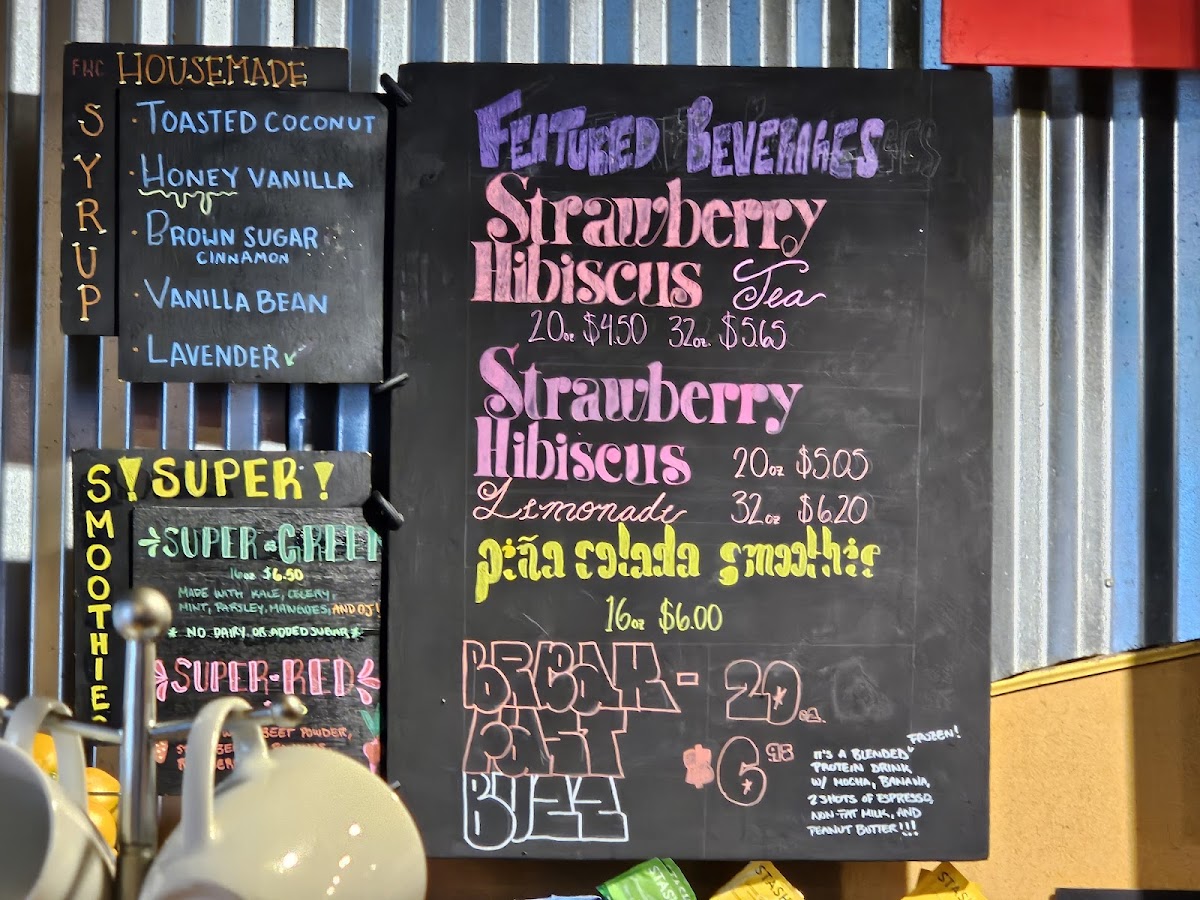 FWC HOUSEMADE
SYRUP
· TOASTED COCONUT
· HONEY VANILLA
· BROWN SUGAR
CINNAMON
· VANILLA BEAN
· LAVENDER
! SUPER !
SMOOTHIES
SUPER GREEN
16oz $6.50
MADE WITH KALE, CELERY,
MINT, PARSLEY, MANGOES, AND OJ!
* NO DAIRY OR ADDED SUGAR *
SUPER-RED
BEET POWDER,
FEATURED BEVERAGES
Strawberry
Hibiscus Tea
20oz $4.50 32oz. $5.65
Strawberry
Hibiscus 20oz $5.05
Lemonade 32oz $6.20
piña colada smoothie
16oz $6.00
BREAK- 20oz.
FAST $6.93
BUZZ
FROZEN!
IT'S A BLENDED
PROTEIN DRINK
W/ MOCHA, BANANA,
2 SHOTS OF ESPRESSO,
NON-FAT MILK, AND
PEANUT BUTTER!!!
STASH
STASH
STASH